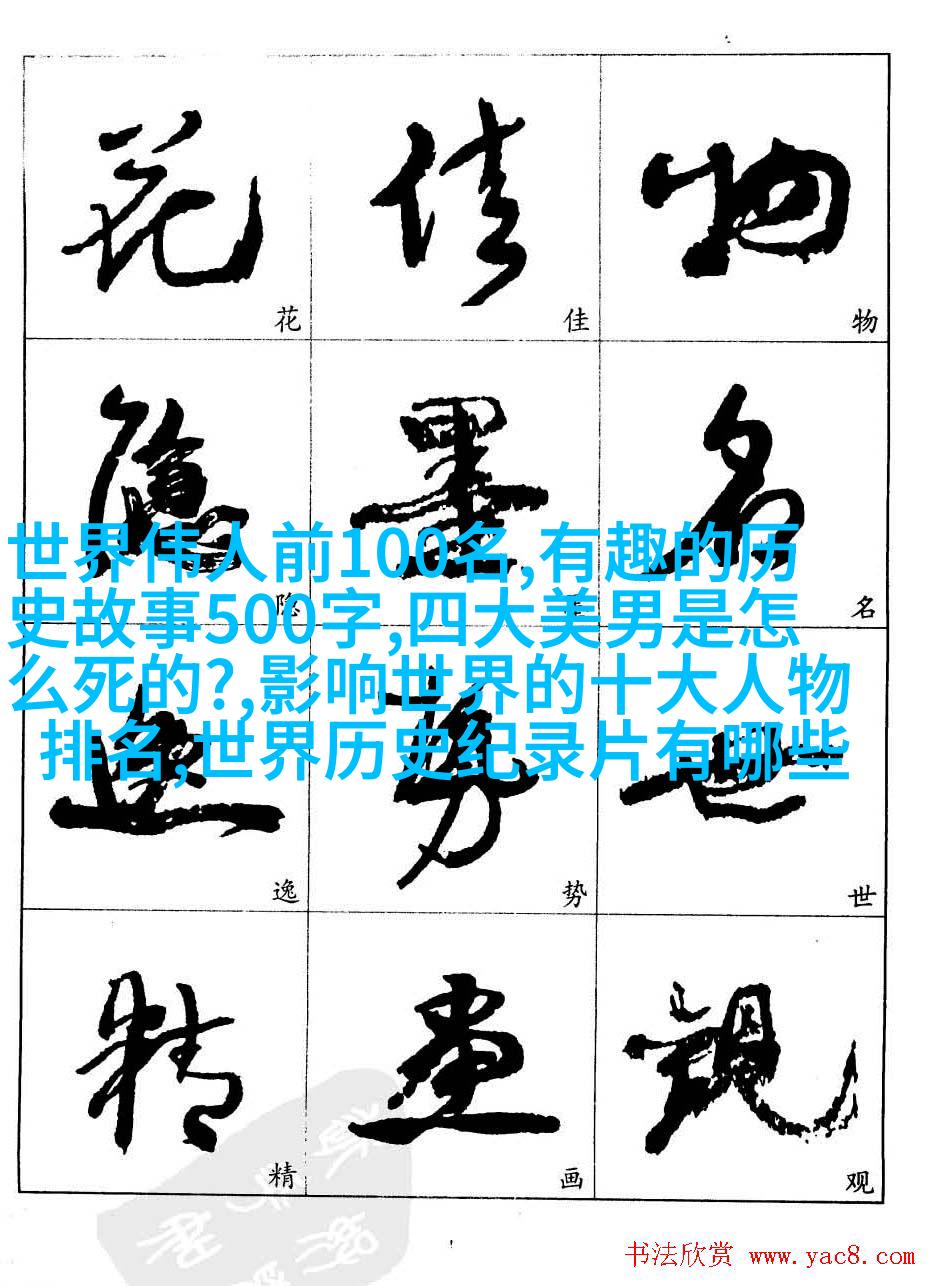 花 佳 物
花 佳 物
隐 墨 名
世界伟人前100名,有趣的历
隐 名
史故事500字,四大美男是怎
么死的?,影响世界的十大人物
排名,世界历史纪录片有哪些
逸 势 世
逸 势 世
精 画 观
精 画 观
书法欣赏 www.yac8.com